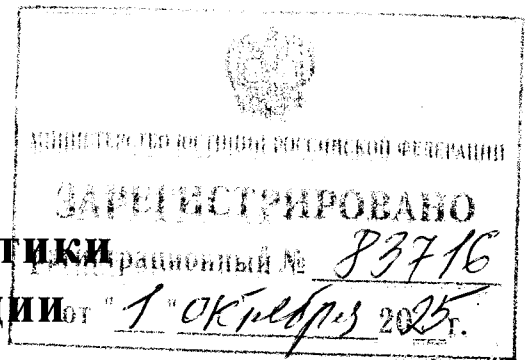 МИНИСТЕРСТВО ЮСТИЦИИ РОССИЙСКОЙ ФЕДЕРАЦИИ
ЗАРЕГИСТРИРОВАНО
тики
Регистрационный № 83716
ции
от "1" октября 2025 г.